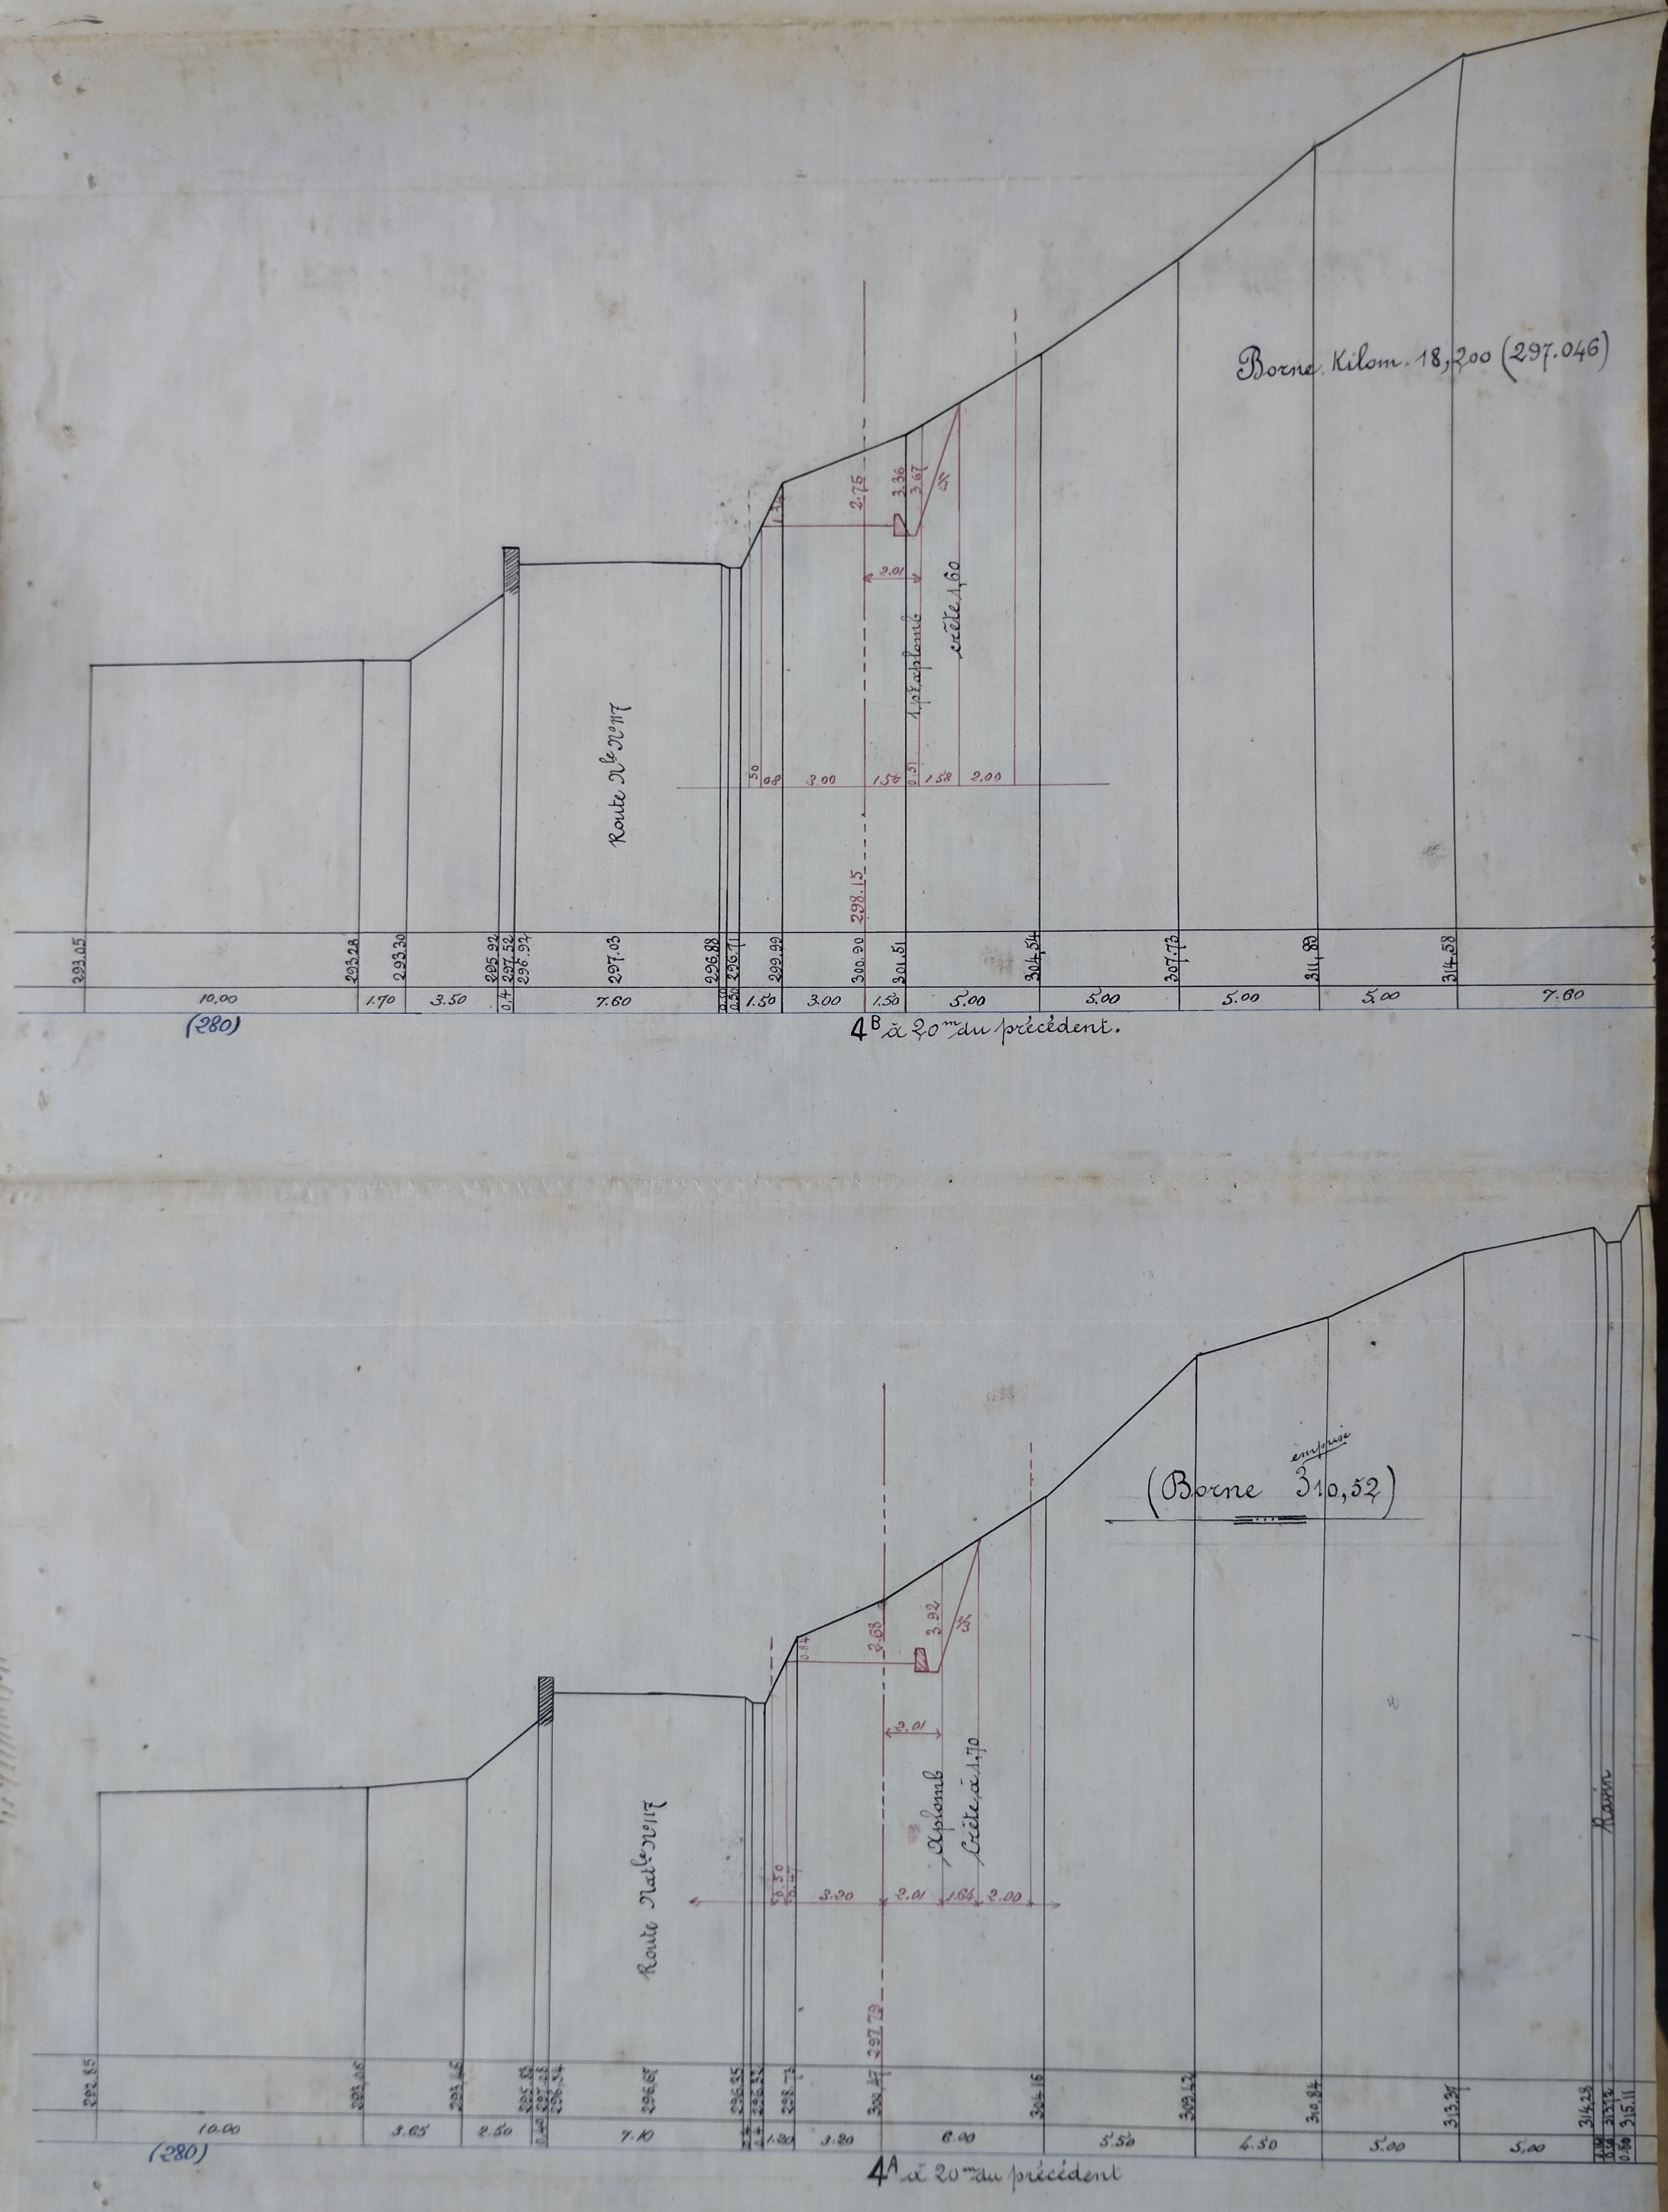 Borne. Kilom. 18,200 (297.046)
1.34
2.75
3.36
3.67
2.01
aplomb
crête 1,60
Route Nle No 117
50
08
3.00
0.51
1.58
2.00
298.15
293.05
293.28
293.30
295.92
297.52
296.92
297.03
296.88
296.71
299.99
300.90
301.51
304,54
307.73
314.58
10,00
1.70
3.50
0.4
7.60
0.50
1.50
3.00
1.50
5.00
5.00
5.00
5,00
7.60
(280)
4B à 20m du précédent.
emprise
(Borne 310,52)
0.84
2.68
3.92
2.01
Aplomb
Crête à 1,70
Route Natle No 117
Ravin
0.50
0.47
3.20
2.01
1.64
2.00
297.79
292.85
293,05
293,45
295.88
297.08
296.54
296,67
296.35
296.32
298.73
300,47
304.16
309.42
310,84
313.37
314.28
313.72
315.11
10.00
3.65
2.50
0.40
7.10
1.20
3.20
6.00
5.50
4.50
5.00
5,00
0.50
(280)
4A à 20m du précédent